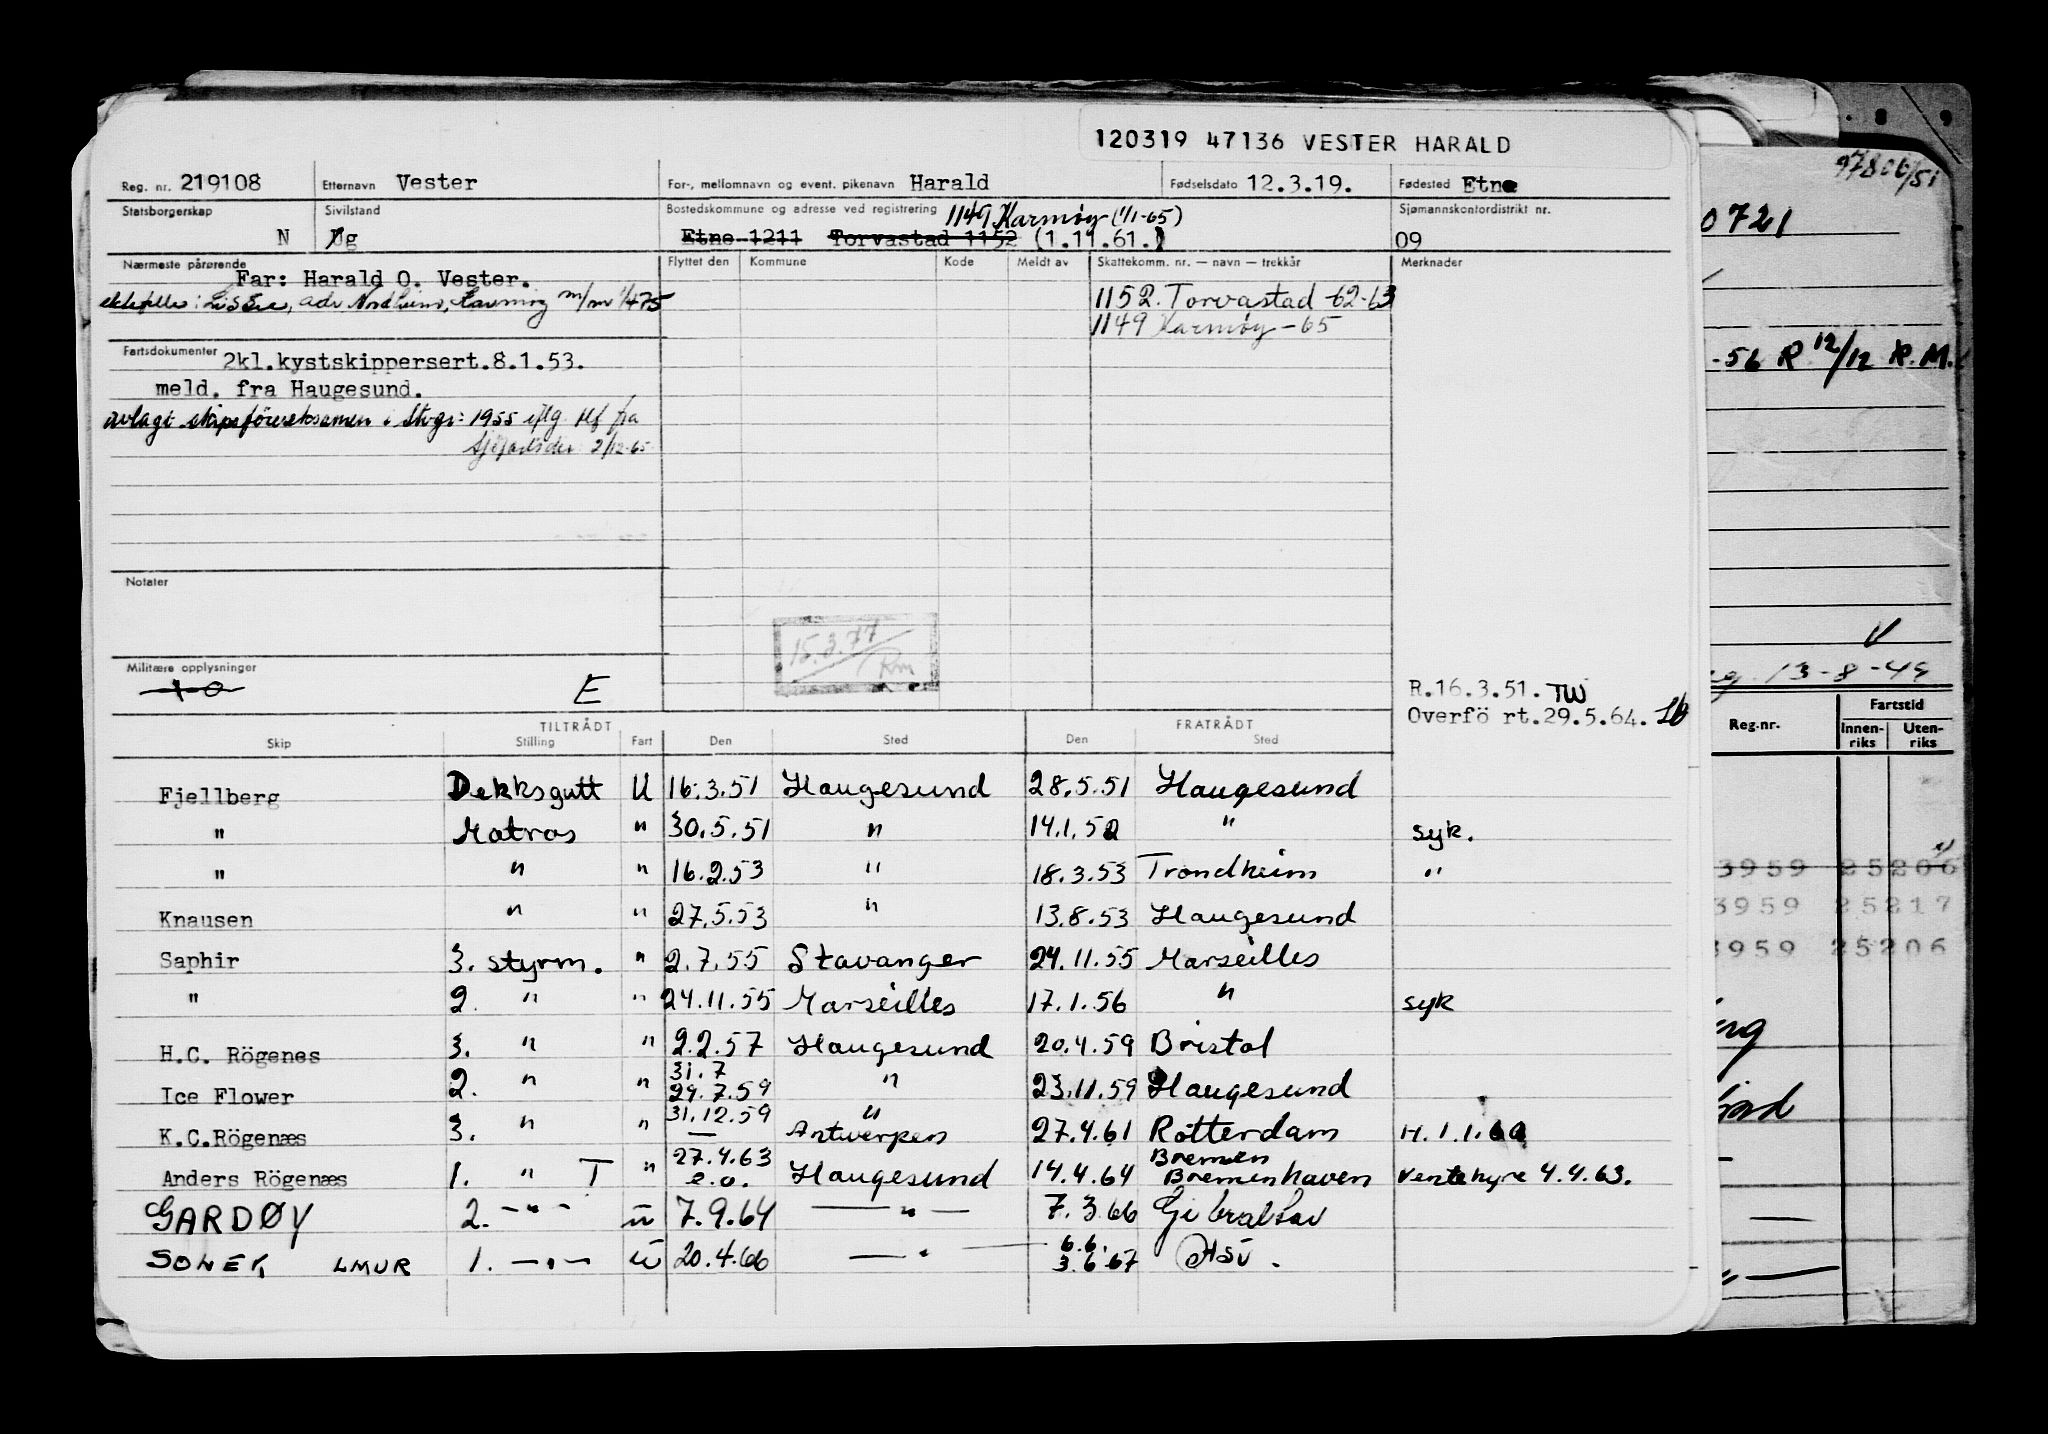 120319 47136 VESTER HARALD
Reg. nr. 219108 Etternavn Vester For-, mellomnavn og event. pikenavn Harald Fødselsdato 12.3.19. Fødested Etne
Statsborgerskap Sivilstand Bostedskommune og adresse ved registrering 1149 Karmøy (1/1-65) Sjømannskontordistrikt nr.
N g Etne 1211 Torvastad 1152 (1.11.61.) 09
Nærmeste pårørende Flyttet den Kommune Kode Meldt av Skattekomm. nr. — navn — trekkår Merknader
Far: Harald O. Vester.
1152. Torvastad -62-63
1149 Karmøy - 65
Fartsdokumenter 2kl.kystskippersert.8.1.53.
meld. fra Haugesund.
avlagt skipsförereksamen i Stvgr: 1955 iflg. tlf fra
2/12-65
Notater
15.3.77
Rm
Militære opplysninger
E
R.16.3.51. TW
Overfö rt.29.5.64.
TILTRÅDT FRATRÅDT
Skip Stilling Fart Den Sted Den Sted
Fjellberg Dekksgutt U 16.3.51 Haugesund 28.5.51 Haugesund
" Matros " 30.5.51 " 14.1.52 " syk.
" " " 16.2.53 " 18.3.53 Trondheim "
Knausen " " 27.5.53 " 13.8.53 Haugesund
Saphir 3. styrm. " 2.7.55 Stavanger 24.11.55 Marseilles
" 2. " " 24.11.55 Marseilles 17.1.56 " syk
H.C. Rögenes 3. " " 2.2.57 Haugesund 20.4.59 Bristol
31.7
Ice Flower 2. " " 29.7.59 " 23.11.59 Haugesund
31.12.59 "
K.C.Rögenæs 3. " " — Antwerpen 27.4.61 Rotterdam H.1.1.60
27.4.63 Bremen
Anders Rögenæs 1. " T " e.o. Haugesund 14.4.64 Bremenhaven Ventehyre 4.4.63.
GARDØY 2. -"- u 7.9.64 —"— 7.3.66 Gibraltar
6.6.
SONEK LMUR 1. —"— u 20.4.66 —"— 3.6.67 Hsv.
8 9
97806/51
0721
-56 R 12/12 R.M.
13-8-49
Reg.nr. Fartstid
Innen-riks Uten-riks
3959 25206
3959 25217
3959 25206